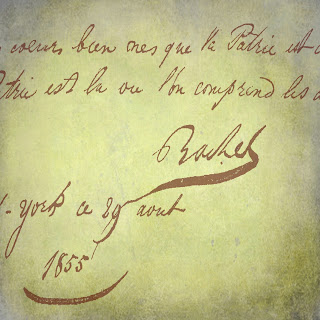 coeurs bien nés que la Patrie est
est la ou l'on comprend les
Rachel
York ce 29 aout
1855